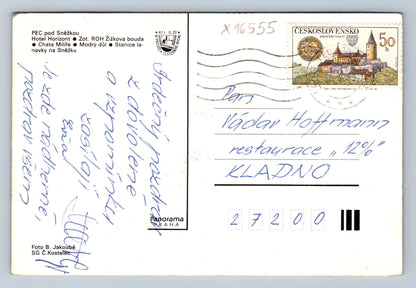 PEC pod Sněžkou
Hotel Horizont • Zot. ROH Žižkova bouda
• Chata Milíře • Modrý důl • Stanice la-
novky na Sněžku
KčL 0,70
x16555
ČESKOSLOVENSKO
50
h
Srdečný pozdrav
z dovolené
a vzpomínku
zasílají
Je zde nádherně,
pozdrav všem
Pan
Václav Hoffmann
restaurace „12%"
KLADNO
27200
Panorama
PRAHA
Foto B. Jakoubě
SG Č.Kostelec